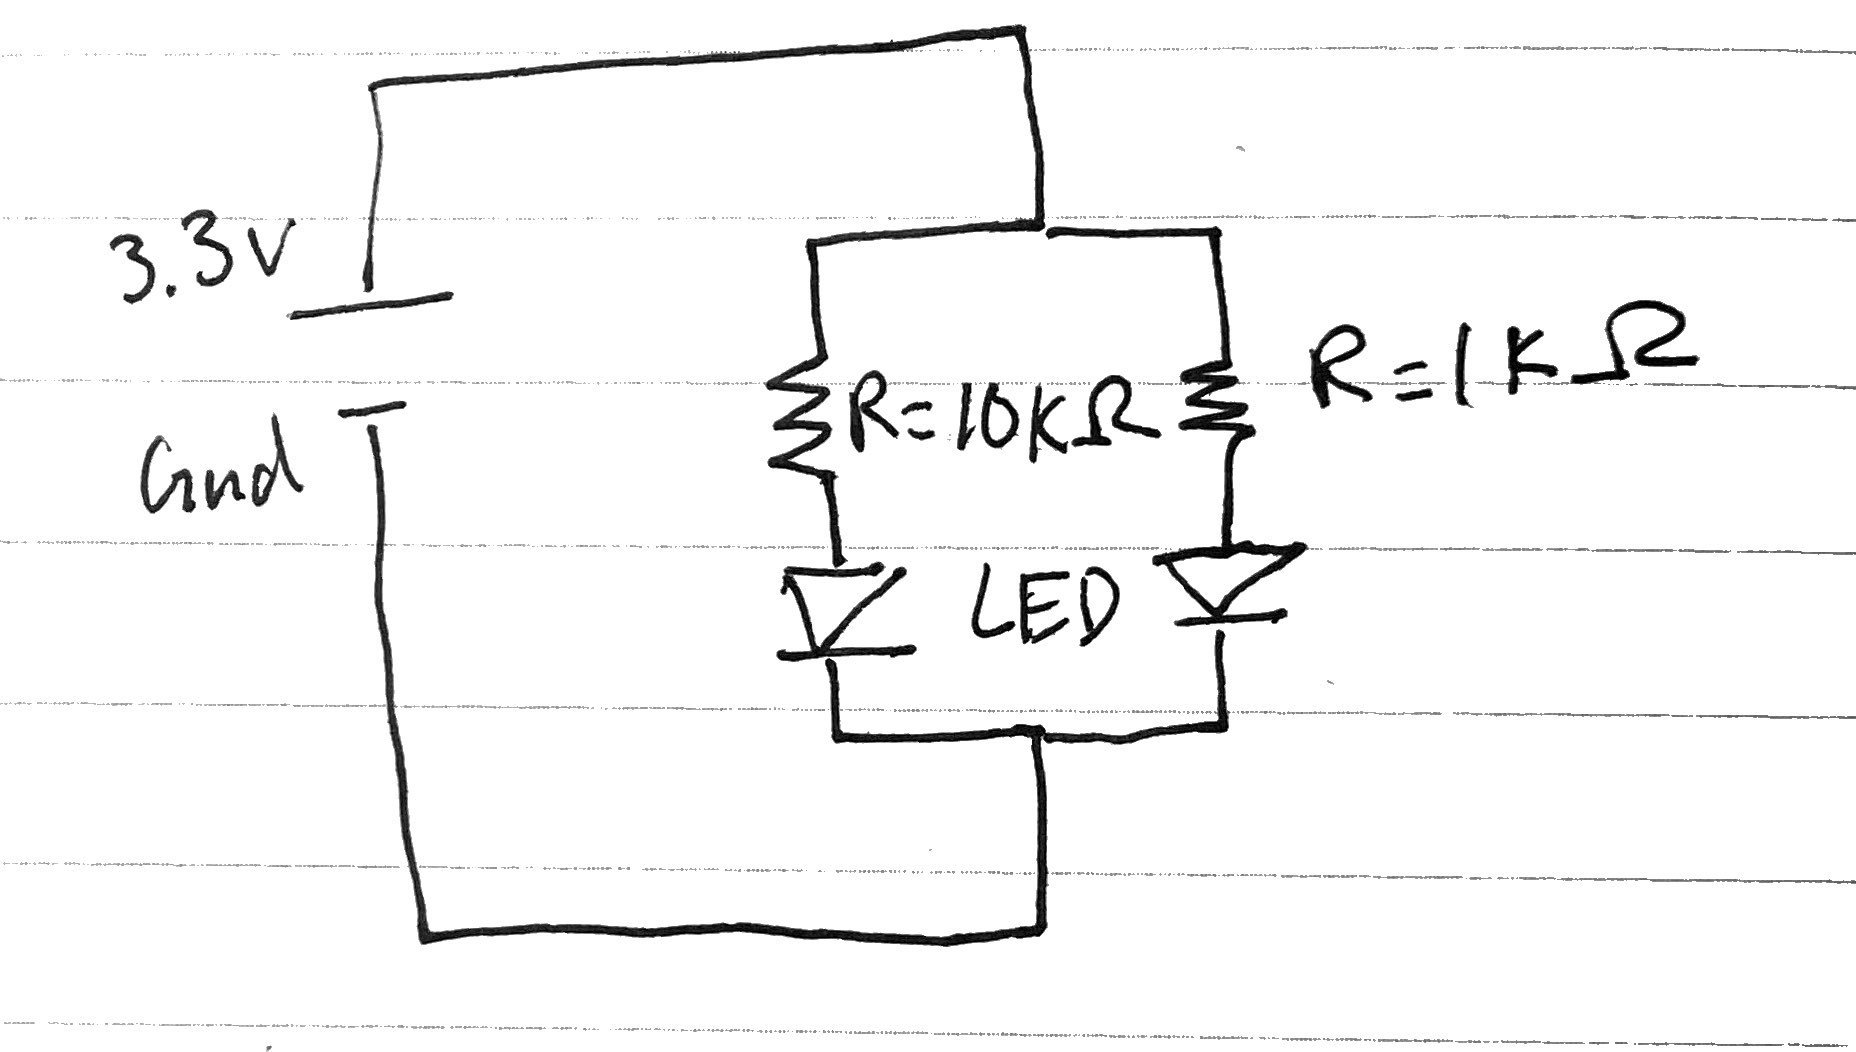 3.3V
Gnd
R=10KΩ
R=1KΩ
LED